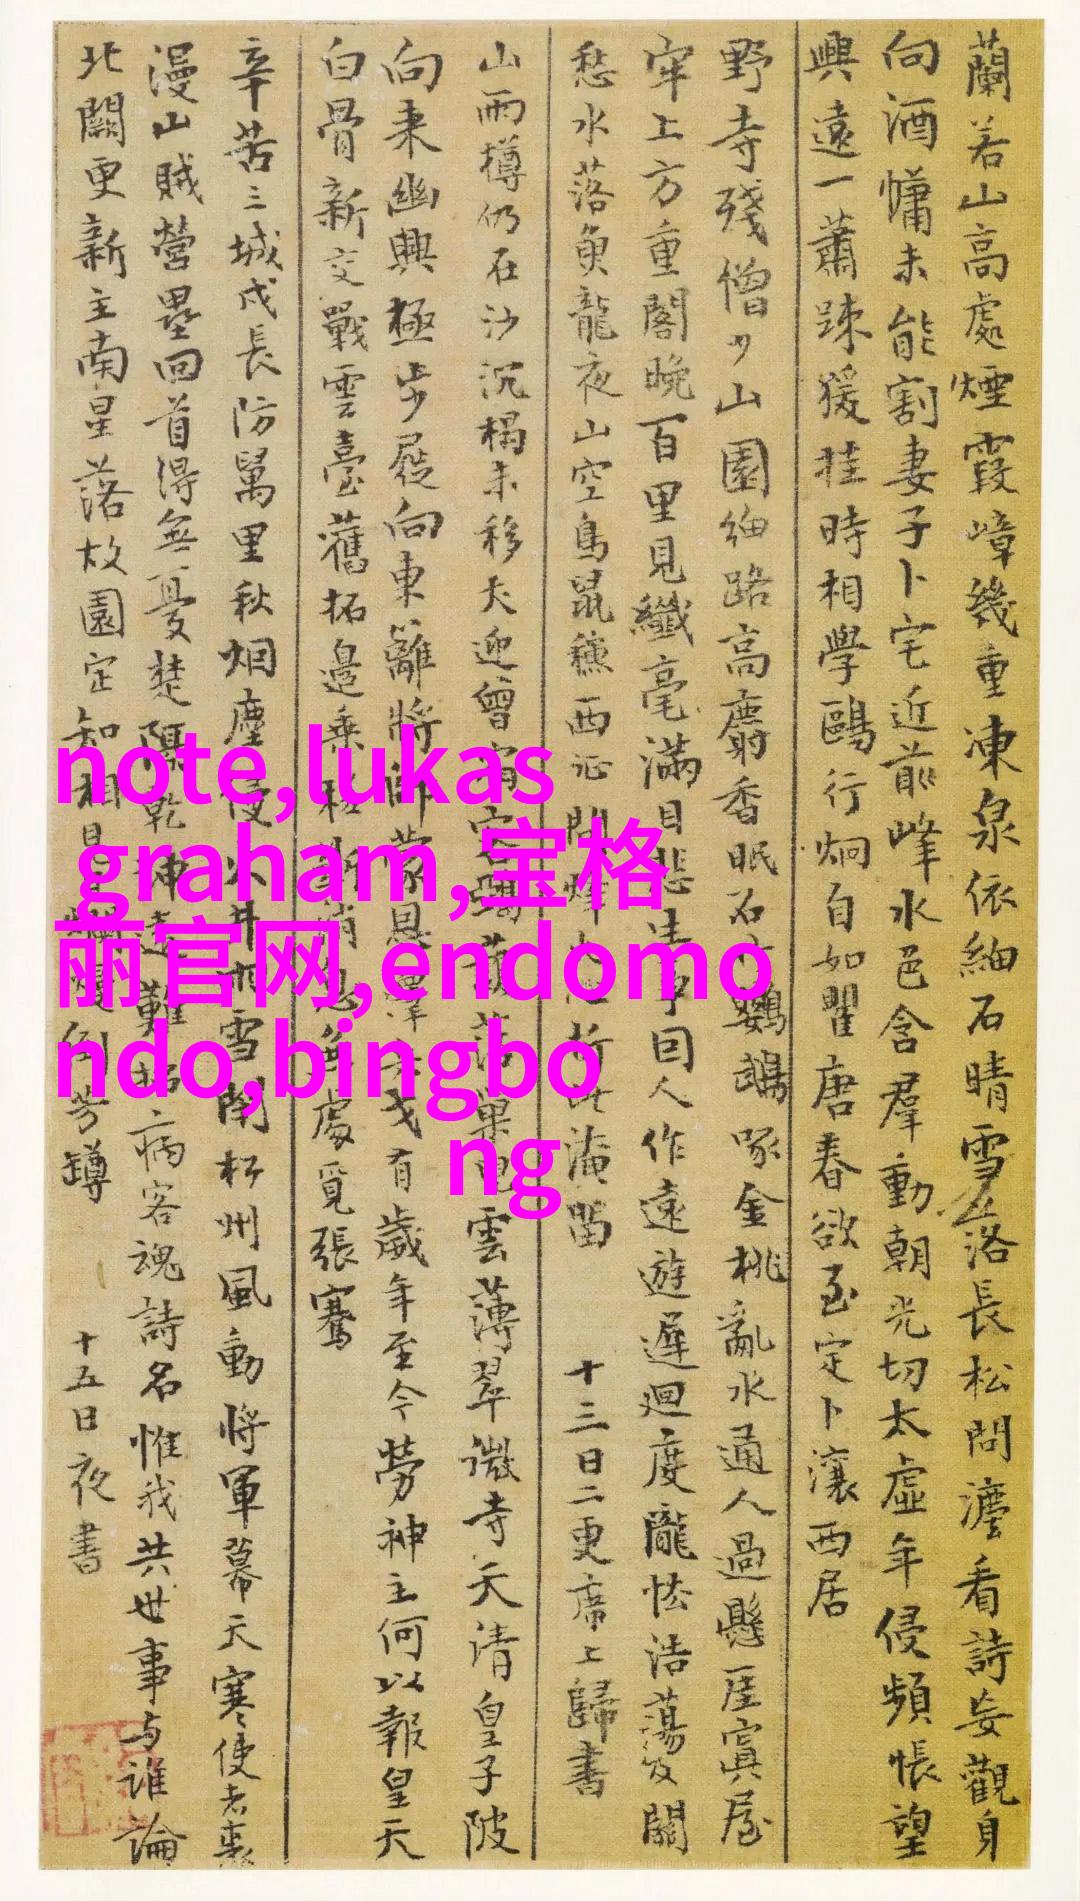 蘭若山高處煙霞嶂幾重凍泉依細石晴雪落長松問灋看詩妄觀身
向酒慵未能割妻子卜宅近前峰水色含羣動朝光切太虛年侵頻悵望
興遠一蕭疎猨挂時相學鷗行炯自如瞿唐春欲至定卜瀼西居
野寺殘僧少山園細路高麝香眠石竹鸚鵡啄金桃亂水通人過懸崖寘屋
牢上方重閣晚百里見纖毫滿目悲生事因人作遠遊遲迴度隴怯浩蕩及關
愁水落魚龍夜山空鳥鼠穐西征問烽火心折此淹留 十三日二更席上歸書
山雨樽仍在沙沉榻未移犬迎曾宿客鴉護落巢兒雲薄翠微寺天清皇子陂
向來幽興極步屧向東籬將帥蒙恩澤兵戈有歲年至今勞神主何以報皇天
白骨新交戰雲臺舊拓邊乘槎斷消息無處覓張騫
辛苦三城戍長防萬里秋烟塵侵火井雨雪閉松州風動將軍幕天寒使者裘
漫山賊營壘回首得無憂楚隅乾坤遠難招病客魂詩名惟我共世事与誰論
北闕更新主南星落故園定知相見日爛熳倒芳罇 十五日夜書
note,lukas
graham,宝格
丽官网,endomo
ndo,bingbo
ng